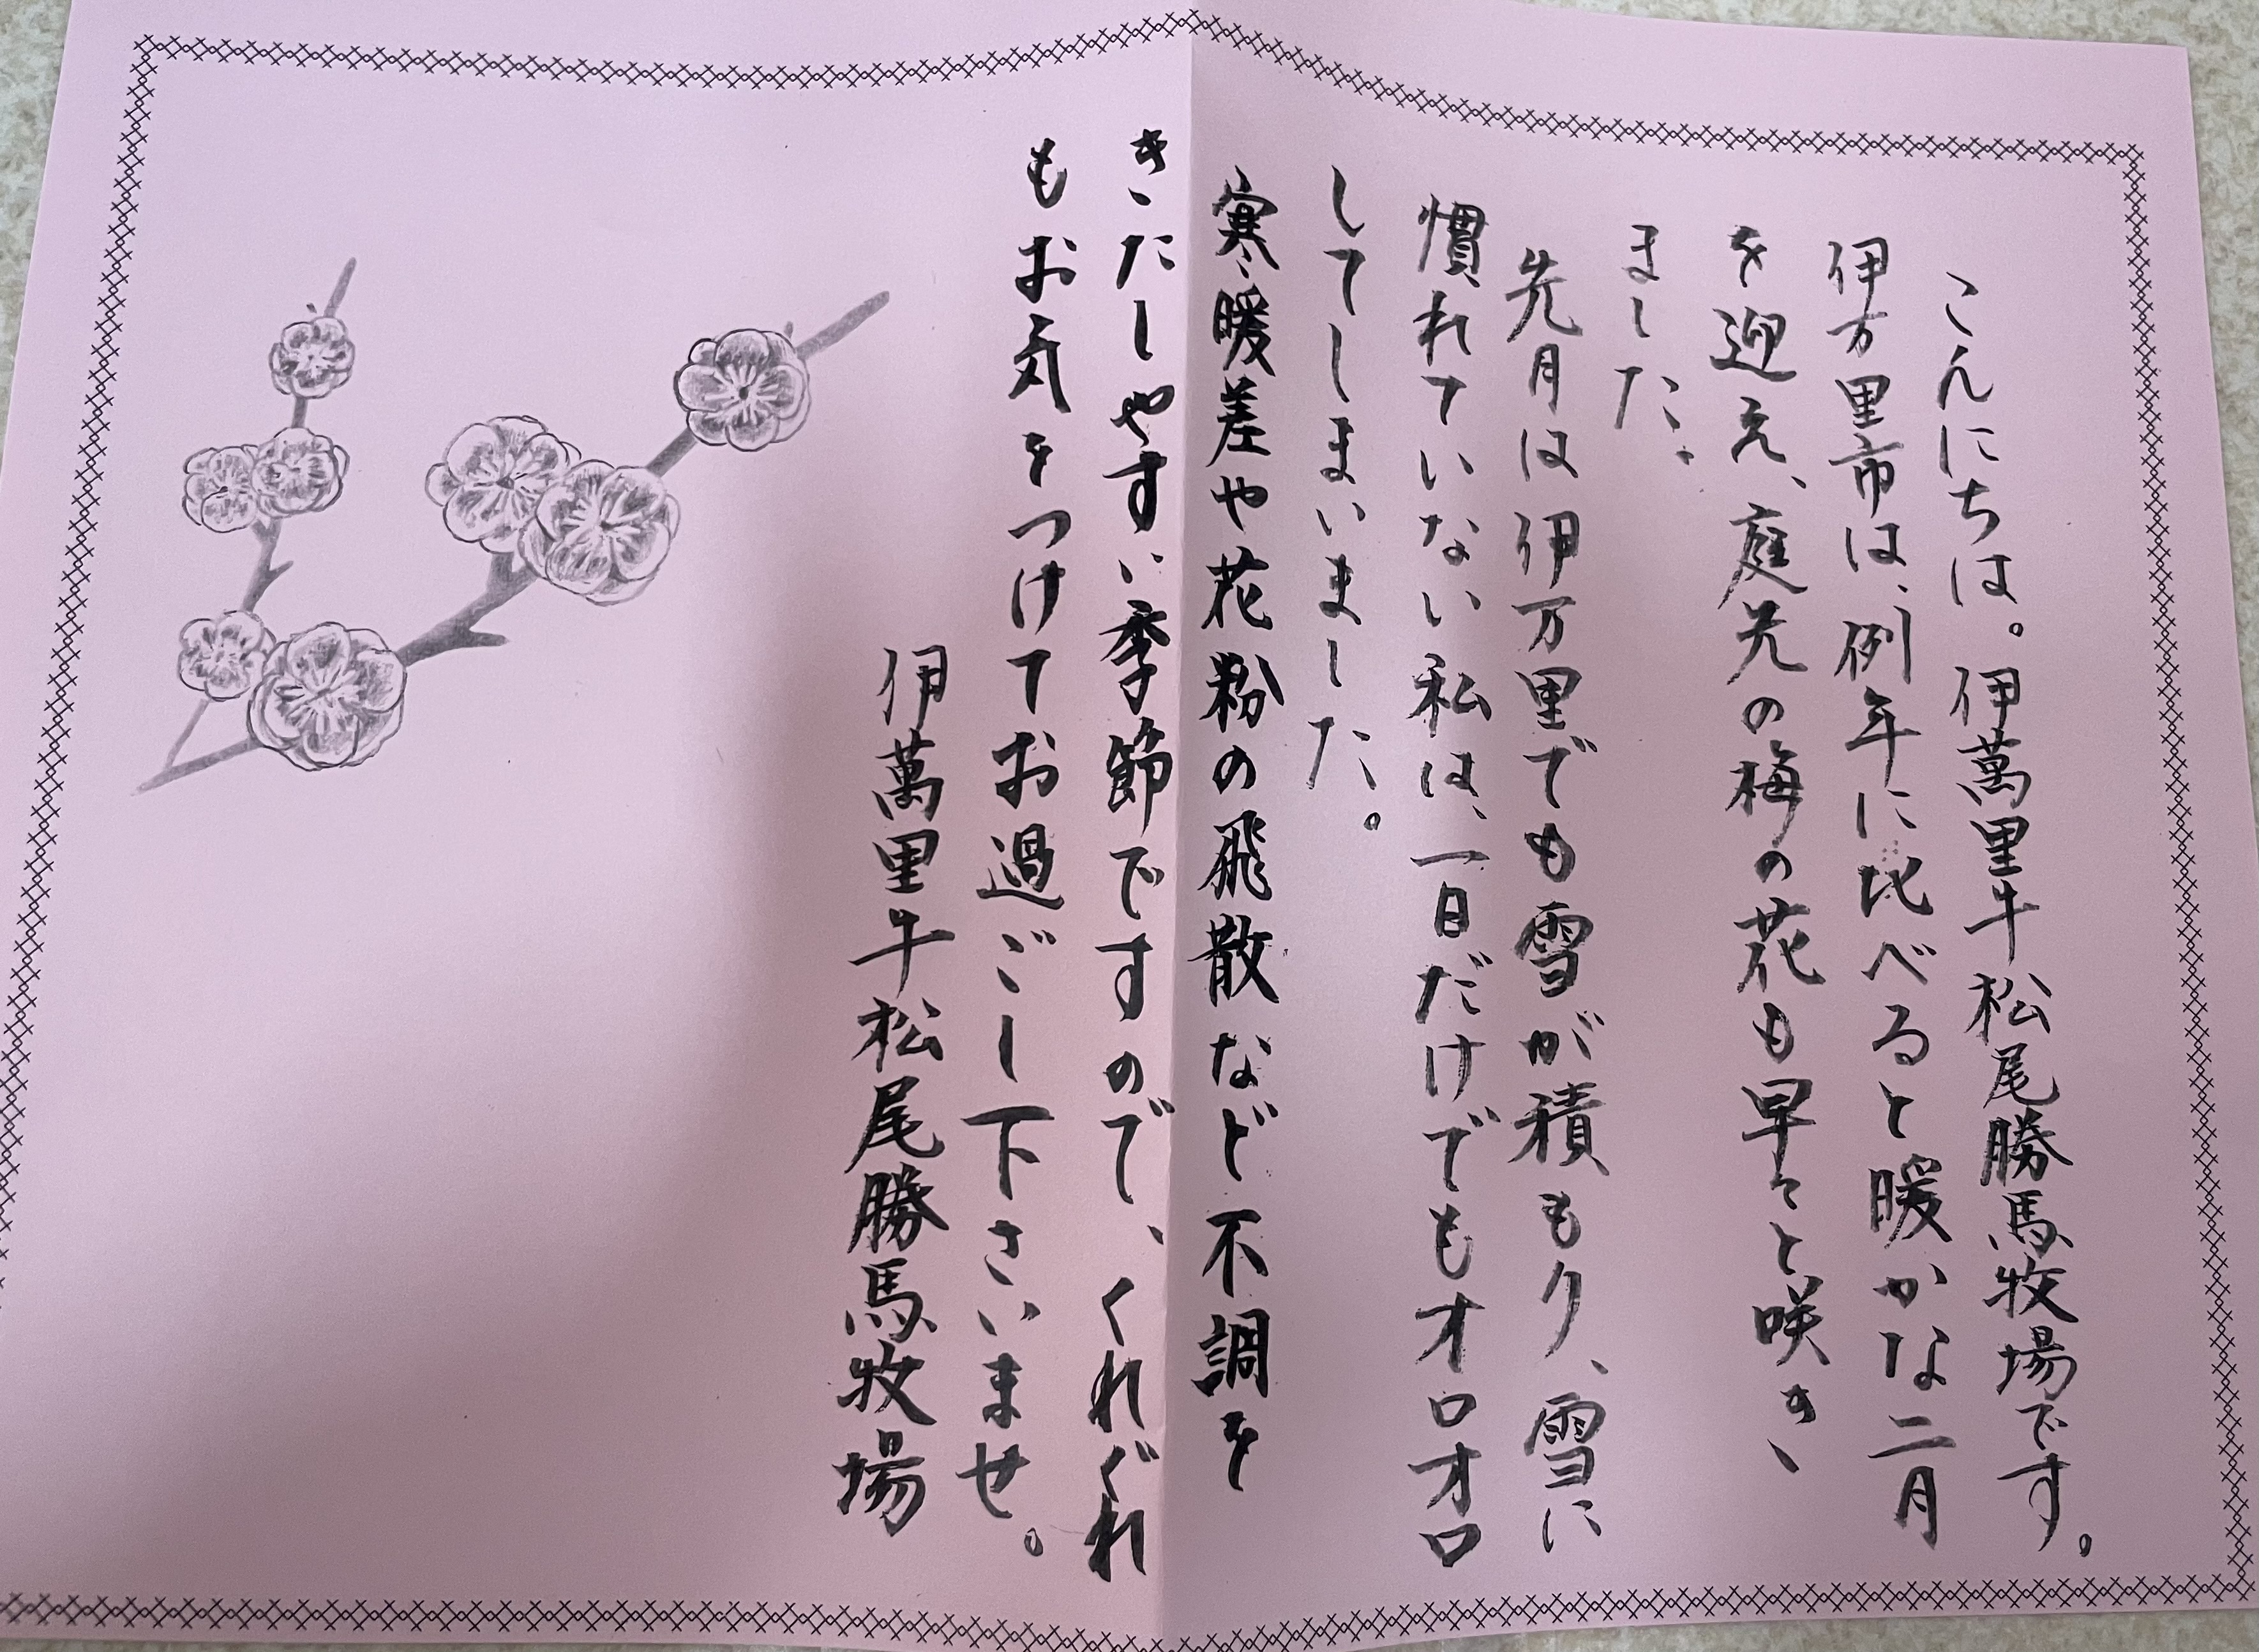 こんにちは。伊萬里牛松尾勝馬牧場です。
伊万里市は、例年に比べると暖かな二月
を迎え、庭先の梅の花も早々と咲き
ました。
先月は伊万里でも雪が積もり、雪に
慣れていない私は、一日だけでもオロオロ
してしまいました。
寒暖差や花粉の飛散など不調を
きたしやすい季節ですので、くれぐれ
もお気をつけてお過ごし下さいませ。
伊萬里牛松尾勝馬牧場